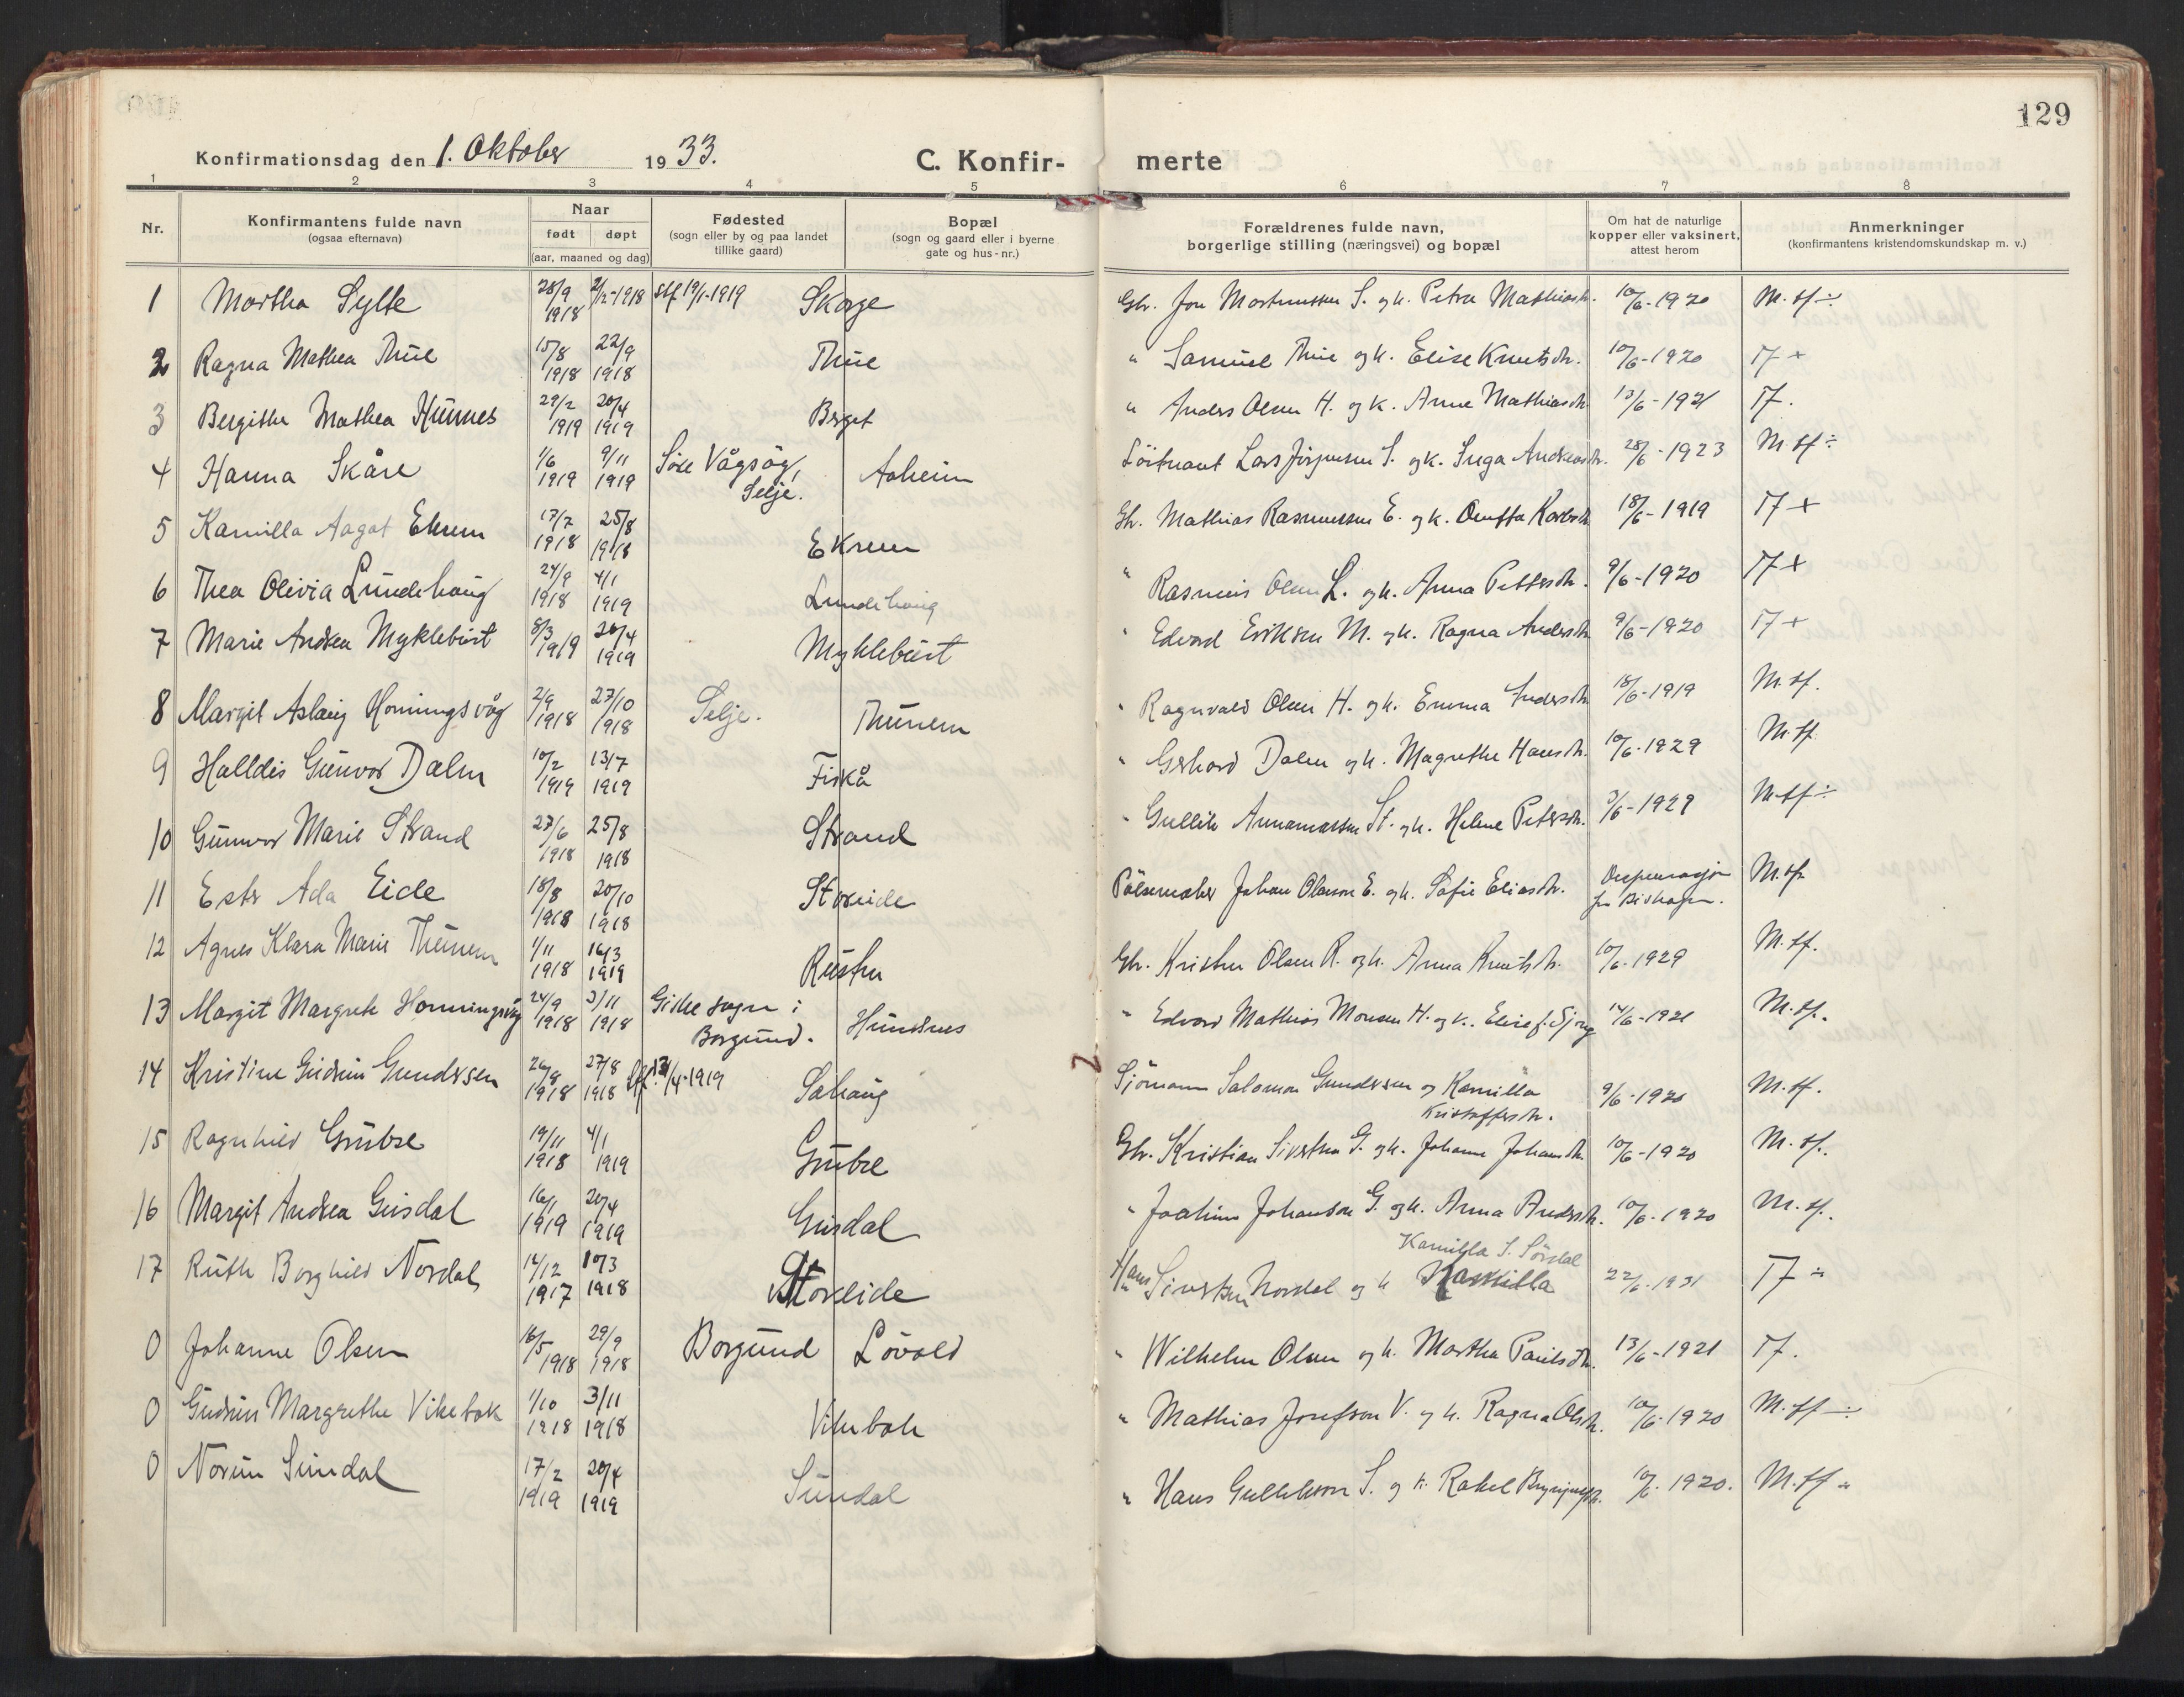 129
Konfirmationsdag den 1. Oktober 1933.
C. Konfir- merte
1 2 3 4 5 6 7 8
Nr.
Konfirmantens fulde navn
(ogsaa efternavn)
Naar
født døpt
(aar, maaned og dag)
Fødested
(sogn eller by og paa landet
tillike gaard)
Bopæl
(sogn og gaard eller i byerne
gate og hus-nr.)
Forældrenes fulde navn,
borgerlige stilling (næringsvei) og bopæl
Om hat de naturlige
kopper eller vaksinert,
attest herom
Anmerkninger
(konfirmantens kristendomskundskap m. v.)
1 Martha Sylte 28/9 1918 2/12-1918 stf 19/1-1919 Skorge Gbr. Jon Martinussen S. og k. Petra Mathiasdtr. 10/6-1920 M. tf ÷
2 Ragna Mathea Thue 15/8 1918 22/9 1918 Thue " Samuel Thue og k. Elise Knutsdtr. 10/6-1920 Tf +
3 Bergithe Mathea Hunnes 29/2 1919 20/4 1919 Berget " Anders Olsen H. og k. Anne Mathiasdtr. 13/6-1921 Tf.
4 Hanna Skåre 1/6 1919 9/11 1919 Søre Vågsøy, Selje. Aaheim Löitnant Lars Jörgensen S. og k. Inga Andreasdtr. 28/6-1923 M. tf ÷
5 Kamilla Aagot Ekrem 17/7 1918 25/8 1918 Ekrem Gbr. Mathias Rasmussen E. og k. 18/6-1919 Tf +
6 Thea Olivia Lundehaug 24/9 1918 4/1 1919 Lundehaug " Rasmus Olsen L. og k. Anna Pettersdtr. 9/6-1920 Tf +
7 Marie Andrea Myklebust 8/3 1919 20/4 1919 Myklebust " Edvard Eriksen M. og k. Ragna Andersdtr. 9/6-1920 Tf +
8 Margit Aslaug Honningsvåg 2/9 1918 27/10 1918 Selje. Thunem " Ragnvald Olsen H. og k. Emma Andersdtr. 18/6-1919 M. tf.
9 Halldis Gunvor Dalen 10/2 1919 13/7 1919 Fiskå " Gerhard Dalen og k. Magrethe Hansdtr. 10/6-1929 M. tf.
10 Gunvor Marie Strand 27/6 1918 25/8 1918 Strand " Gullik Annaniassen St. og k. Helene Petersdtr. 3/6-1929 M. tf ÷
11 Ester Ada Eide 18/8 1918 20/10 1918 Storeide Pölsemaker Johan Olasson E. og k. Sofie Eliasdtr. Dispensasjon fra Biskopen. M. tf.
12 Agnes Klara Marie Thunem 1/11 1918 16/3 1919 Rusten Gbr. Kristen Olsen R. og k. Anna Knutsdtr. 10/6-1929 M. tf.
13 Margit Margrete Honningsvåg 24/9 1918 3/11 1918 Giske sogn i Borgund. Hundsnes " Edvard Mathias Monsen H. og k. Elise f. 14/6-1921 M. tf.
14 Kristine Gudrun Gundersen 26/8 1918 27/8 1918 stf. 13/4-1919 Sahaug Sjömann Salomon Gundersen og Kamilla Kristoffersdtr. 9/6-1920 M. tf.
15 Ragnhild Grubse 19/11 1918 4/1 1919 Grubse Gbr. Kristian Sivertsen G. og k. Johanne Johansdtr. 10/6-1920 M. tf.
16 Margit Andrea Gusdal 16/1 1919 20/4 1919 Gusdal " Joakim Johansson G. og k. Anna Andersdtr. 10/6-1920 M. tf.
17 Ruth Borghild Nordal 14/12 1917 10/3 1918 Storeide Hans Sivertsen Nordal og k Kamilla Kamilla S. Sördal 22/6-1931 Tf ÷
0 Johanne Olsen 16/5 1918 29/9 1918 Borgund Lövold " Wilhelm Olsen og k. Martha Paulsdtr. 13/6-1921 Tf.
0 Gudrun Margrethe Vikebak 1/10 1918 3/11 1918 Vikebak " Mathias Josefson V. og k. Ragna Olsdtr. 10/6-1920 M. tf ÷
0 Norun Sundal 17/2 1919 20/4 1919 Sundal " Hans Gullikson S. og k. Rakel 10/6-1920. M. tf ÷